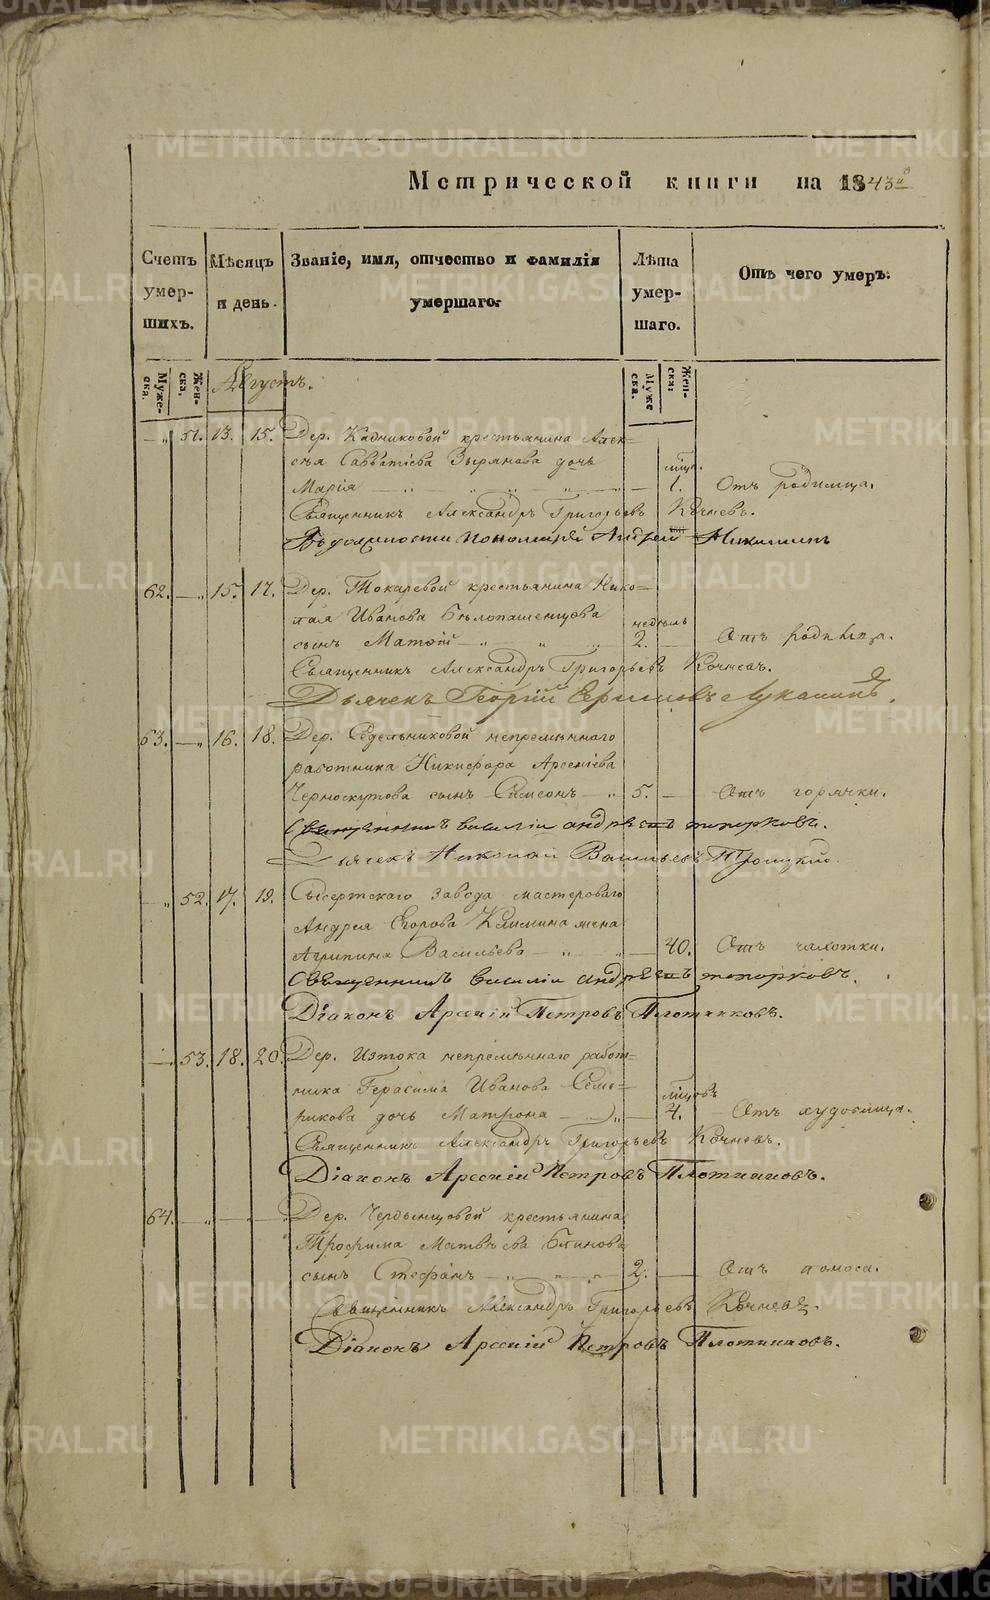 Метрической книги на 1843й
Счетъ умер-шихъ.
Мѣсяцъ и день.
Званіе, имя, отчество и фамилія умершаго.
Лѣта умер-шаго.
Отъ чего умеръ.
Муже-ска.
Жен-ска.
Августъ.
Муже ска.
Жен-ска:
— „ 51. 13. 15. Дер. Кадниковой крестьянина Алек=
сѣя Савватіева Зырянова дочь мѣц.
Марія — „ — „ — „ — 1. Отъ родимца.
Священникъ Александръ Григорьевъ Кочневъ.
Въ должности пономаря Андрей Никитинъ
62. — „ 15. 17. Дер. Токаревой крестьянина Нико=
лая Иванова Бѣлопашенцова недѣль
сынъ Матѳій — „ „ „ 2. — Отъ родимца.
Священникъ Александръ Григорьевъ Кочневъ.
Дьячекъ Георгій Ефимовъ Луканинъ.
63. — „ 16. 18. Дер. Седельниковой непремѣннаго
работника Никифора Арсеніева
Черноскутова сынъ Самсонъ — „ 5. — Отъ горячки.
Священникъ василій андреевъ топорковъ.
Дьячекъ Николай Васильевъ Троицкій.
— „ 52. 17. 19. Сысертскаго завода мастероваго
Андрея Егорова Климина жена
Агрипина Васильева — „ — „ — 40. Отъ чахотки.
Священникъ василій андреевъ топорковъ.
Діаконъ Арсеній Петровъ Плотниковъ.
— 53. 18. 20. Дер. Изтока непремѣннаго работ=
ника Герасима Иванова Семе=
рикова дочь Матрона — „ — мѣцовъ 4. Отъ худобища.
Священникъ Александръ Григорьевъ Кочневъ.
Діаконъ Арсеній Петровъ Плотниковъ.
64. — „ — — „ Дер. Чердынцовой крестьянина
Трофима Матвѣева Блинова
сынъ Стефанъ — „ — „ — 2. — Отъ поноса.
Священникъ Александръ Григорьевъ Кочневъ.
Діаконъ Арсеній Петровъ Плотниковъ.
METRIKI.GASO-URAL.RU